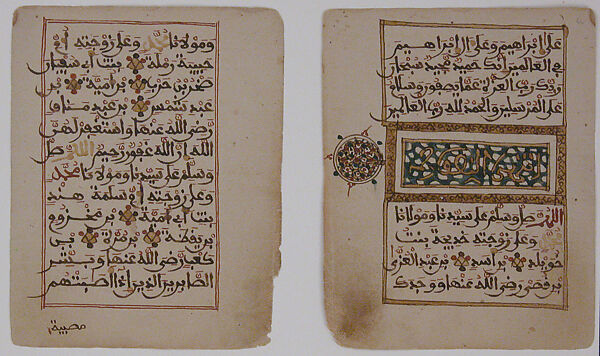 على إبراهيم وعلى آل إبراهيم
في العالمين إنك حميد مجيد سبحان
ربك رب العزة عما يصفون وسلام
على المرسلين والحمد لله رب العالمين
اللهم صل وسلم على سيدنا ومولانا
محمد وعلى زوجته خديجة بنت
خويلد بن أسد بن عبد العزى
بن قصي رضي الله عنها
ومولانا محمد وعلى زوجته أم
حبيبة رملة بنت أبي سفيان
صخر بن حرب بن أمية بن
عبد شمس بن عبد مناف
رضي الله عنها واستغفر لهن
الله إن الله غفور رحيم اللهم صل
وسلم على سيدنا ومولانا محمد
وعلى زوجته أم سلمة هند
بنت أبي أمية بن مخزوم
بن يقظة بن مرة بن
كعب رضي الله عنها وبشر
الصابرين الذين إذا أصبتهم
مصيبة